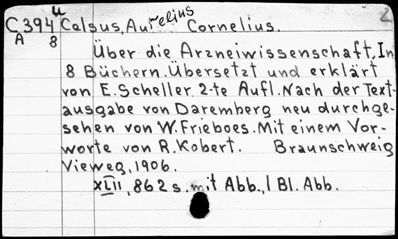 u 2
C 394 Celsus, Aurelius Cornelius.
A 8
Über die Arzneiwissenschaft, In
8 Büchern. Übersetzt und erklärt
von E. Scheller. 2-te Aufl. Nach der Text-
ausgabe von Daremberg neu durchge-
sehen von W. Frieboes. Mit einem Vor-
worte von R. Kobert. Braunschweig
Vieweg, 1906.
XLII, 862 s. mit Abb., 1 Bl. Abb.